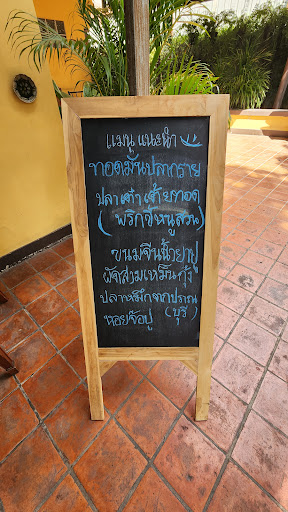 เมนูแนะนำ
ทอดมันปลากราย
ปลาเต๋าเต้ยทอด
(พริกขี้หนูสวน)
ขนมจีนน้ำยาปู
ผัดสามเหม็นกุ้ง
ปลาหมึกจากปราณ
หอยจ้อปู (บุรี)